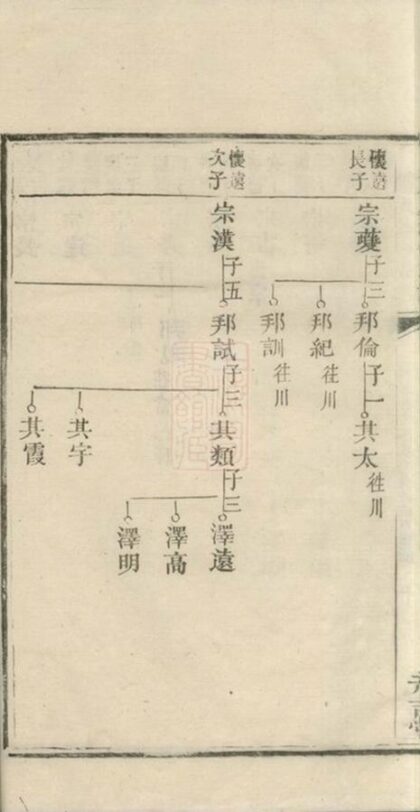 懷遠長子
宗夔
子三
邦倫
子一
共太
徃川
邦紀
徃川
邦訓
徃川
懷遠次子
宗漢
子五
邦試
子三
共類
子三
澤遠
澤高
澤明
共宇
共霞